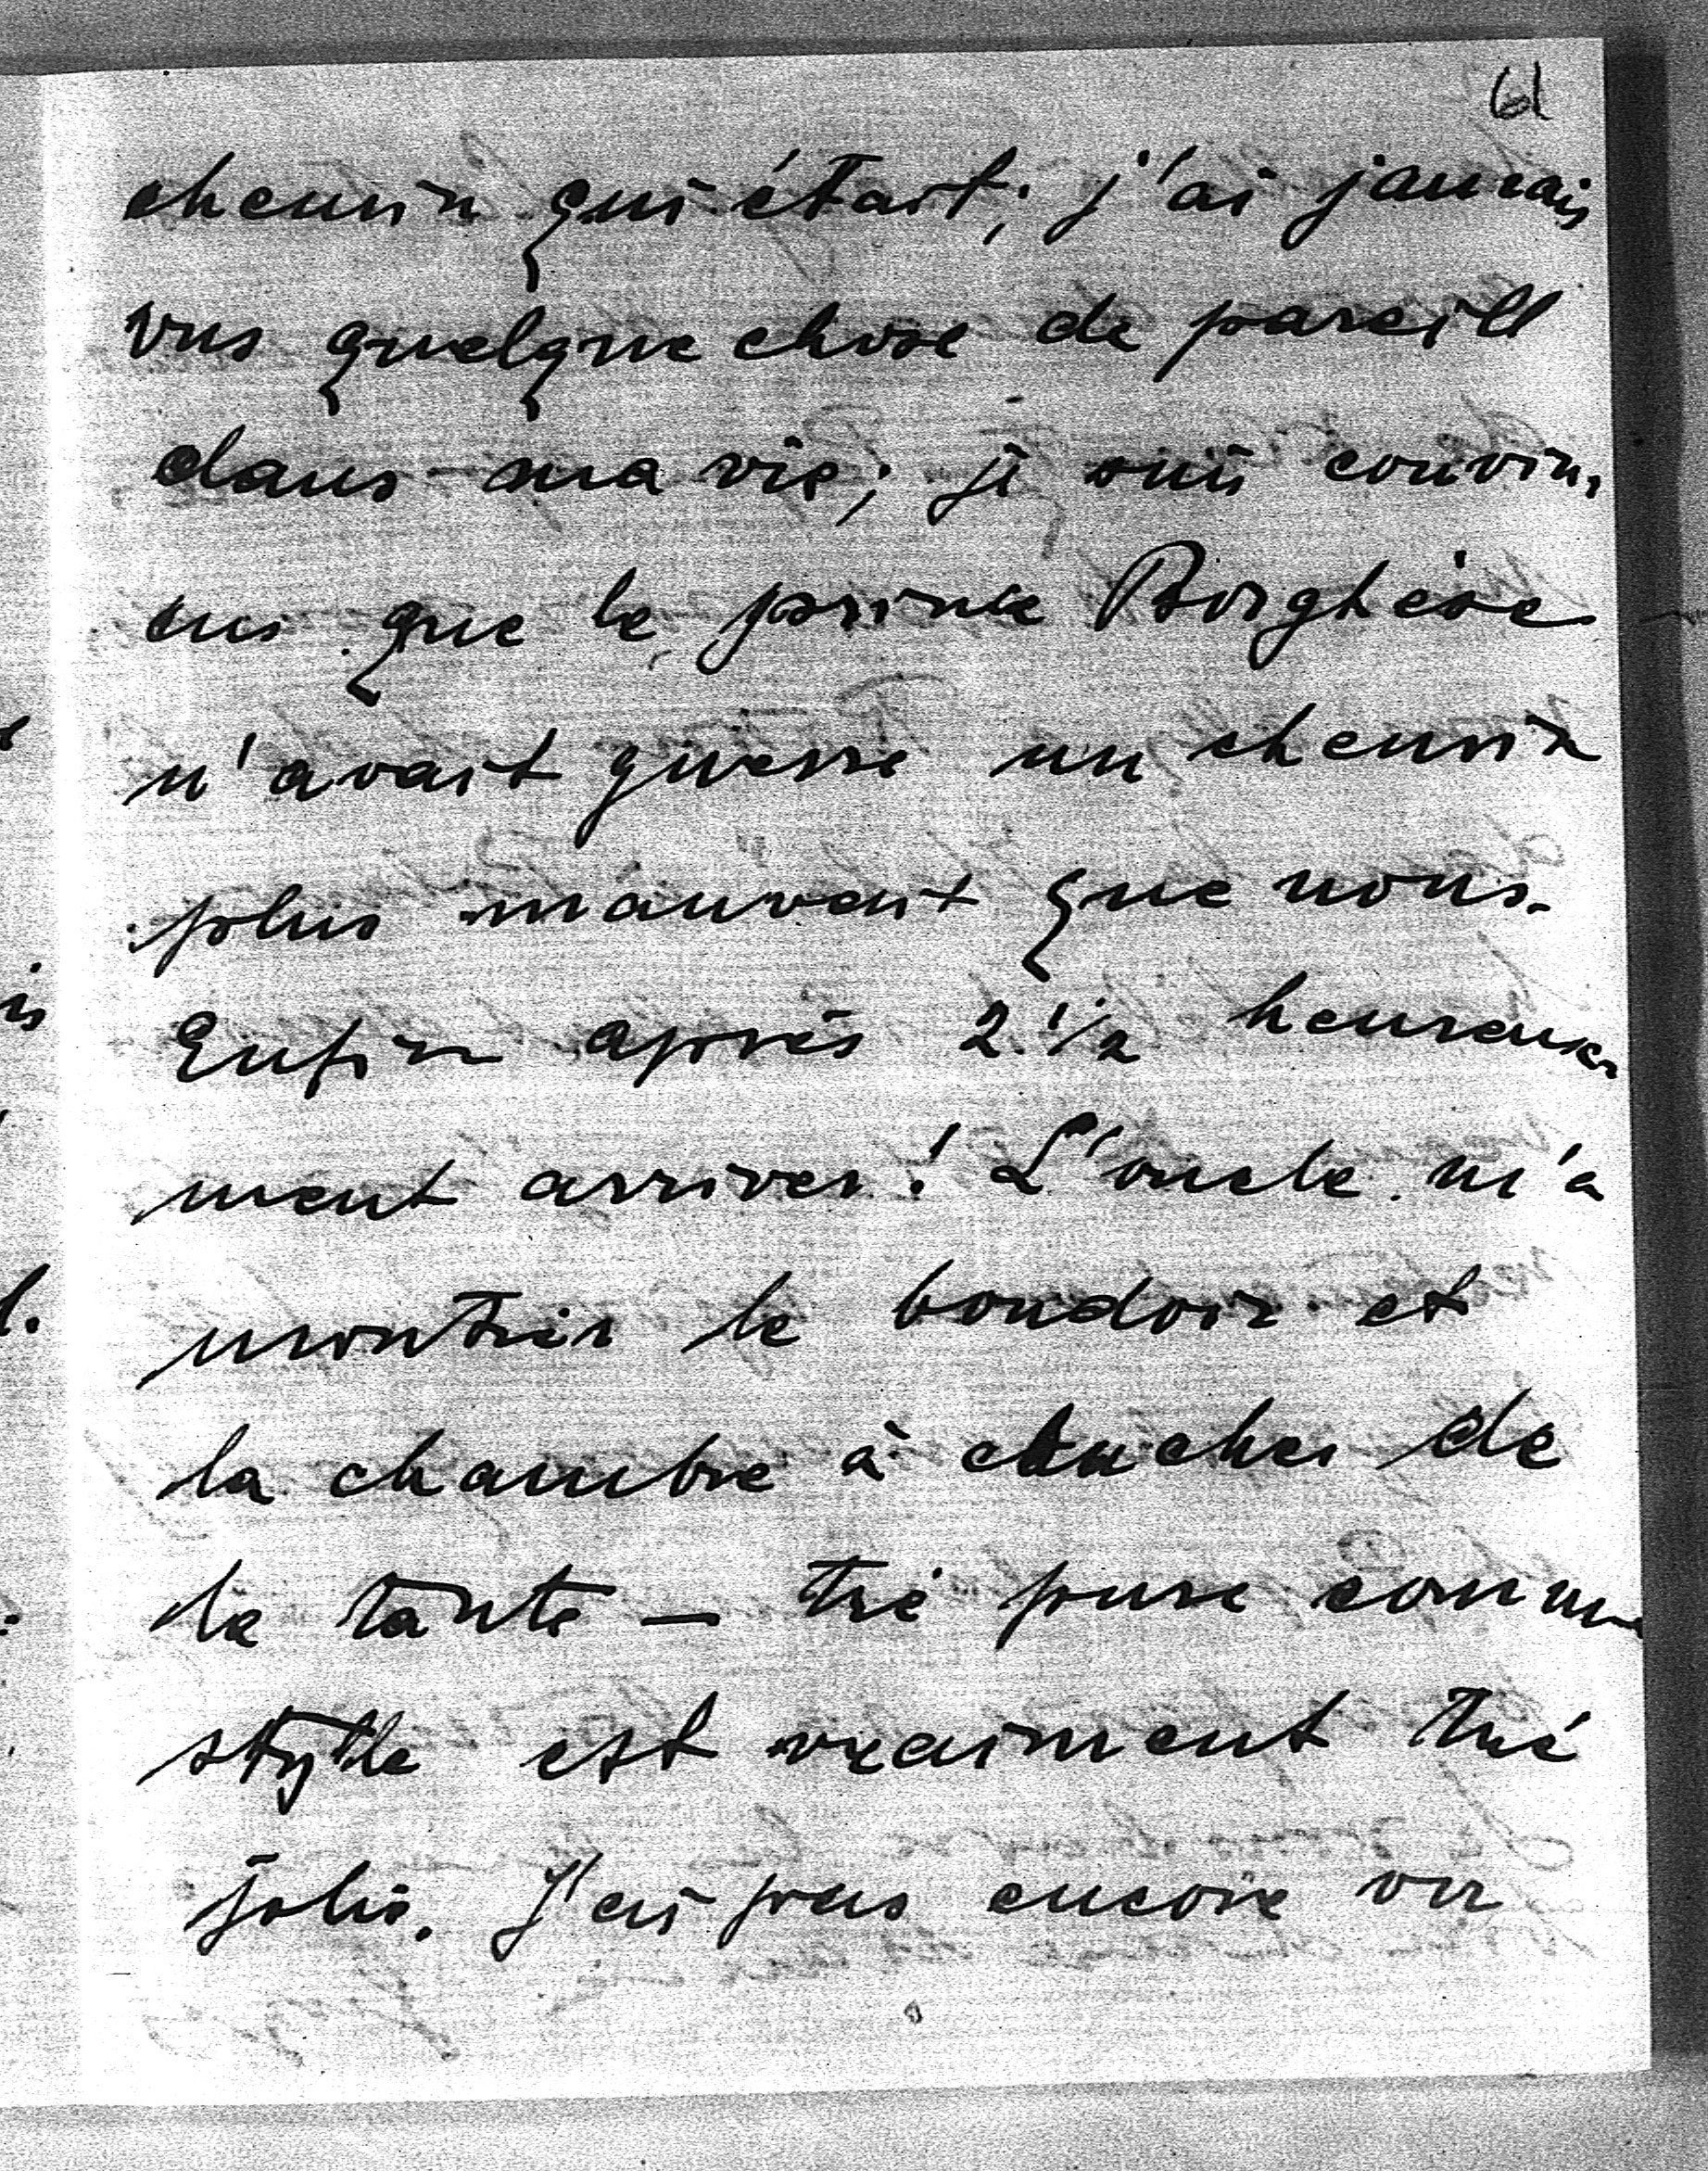 61
chemin qui était; j'ai jamais
vus quelque chose de pareill
dans ma vie; je suis convin-
cus que le prince Borghèse
n'avait guerre un chemin
plus mauvait que nous.
Enfin après 2 1/2 heureuse-
ment arriver! L'oncle m'a
montrer le boudoir et
la chambre à chucher de
la tante — tré pure comme
stytle est vraiment tré
jolis. J'ai pas encore vu